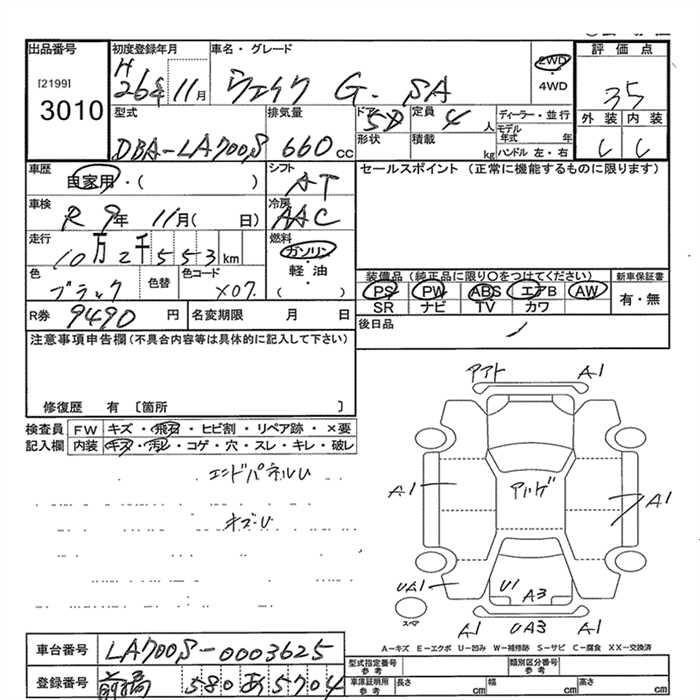 出品番号 初度登録年月 車名・グレード 評価点
[2199] H 26年 11月 ウェイク G. SA 2WD 4WD 35
3010
型式 排気量 ドア 定員 ディーラー・並行 外装 内装
DBA-LA700S 660cc 5D 4人 モデル年式 年 C C
形状 積載 kg ハンドル 左・右
車歴 自家用・( ) シフト AT セールスポイント (正常に機能するものに限ります)
車検 R 9年 11月( 日) 冷房 AAC
走行 10万2千553km 燃料 ガソリン・軽油・( )
色 ブラック 色替 色コード X07. 装備品 (純正品に限り○をつけてください) 新車保証書
PS PW ABS エアB AW 有・無
SR ナビ TV カワ
R券 9490円 名変期限 月 日 後日品
注意事項申告欄(不具合内容等は具体的に記入して下さい)
修復歴 有 〔箇所 〕
検査員 FW キズ・飛石・ヒビ割・リペア跡・×要
記入欄 内装 キズ・汚レ・コゲ・穴・スレ・キレ・破レ
エンドパネルU
キズU
アアト A1
A1 アハゲ A1
UA1 U1 A3
スペア A1 UA3 A1
A-キズ E-エクボ U-凹み W-補修跡 S-サビ C-腐食 XX-交換済
車台番号 LA700S-0003625
登録番号 前橋 580 あ 5704
型式指定番号 参考 類別区分番号 参考
車庫証明用 参考 長さ cm 幅 cm 高さ cm